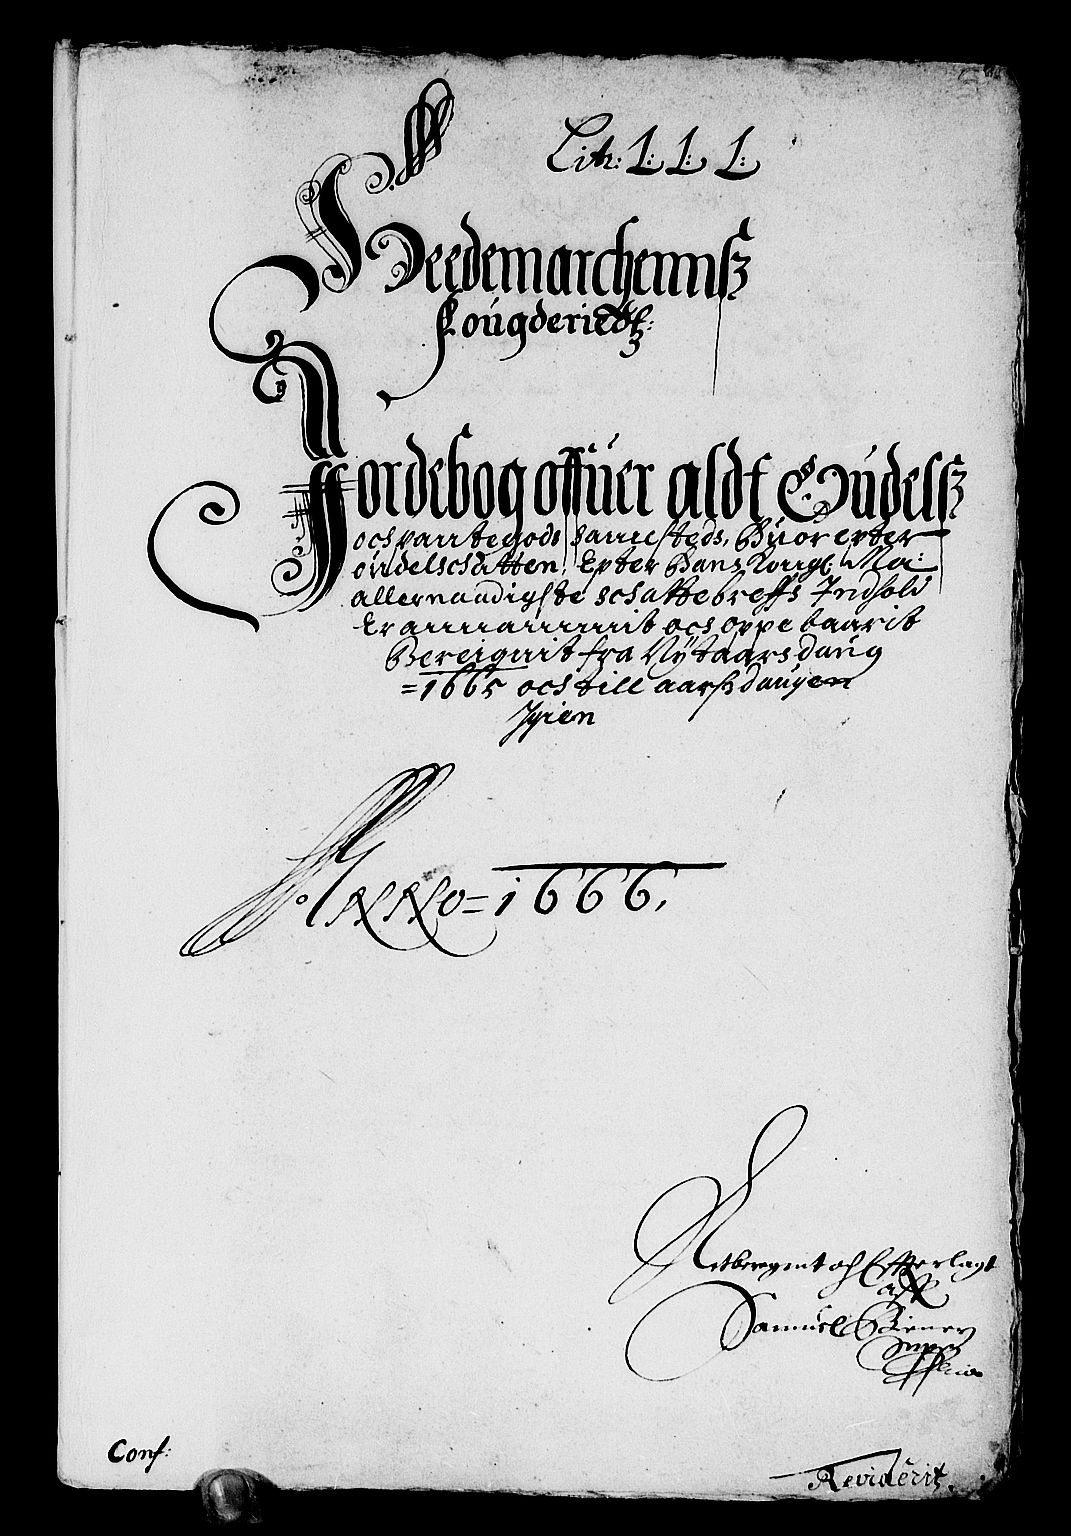 Litr: L: L: L:
Heedemarchennsz
Fougderiedtz:
Jordebog offuer aldt Oudelsz
och pantegods sammesteds, Huor epter
oudelschatten, Epter Hans Kongl: Ma:
allernaadigste schattebreffs Indhold
Er annammit och oppebaarit
Bereignit fra Nÿtaarsdaug
=1665 och till aarsz daugen
Igien
Anno=1666,
och Efterlagt
aff
Samuel
Conf:
Reviderit,